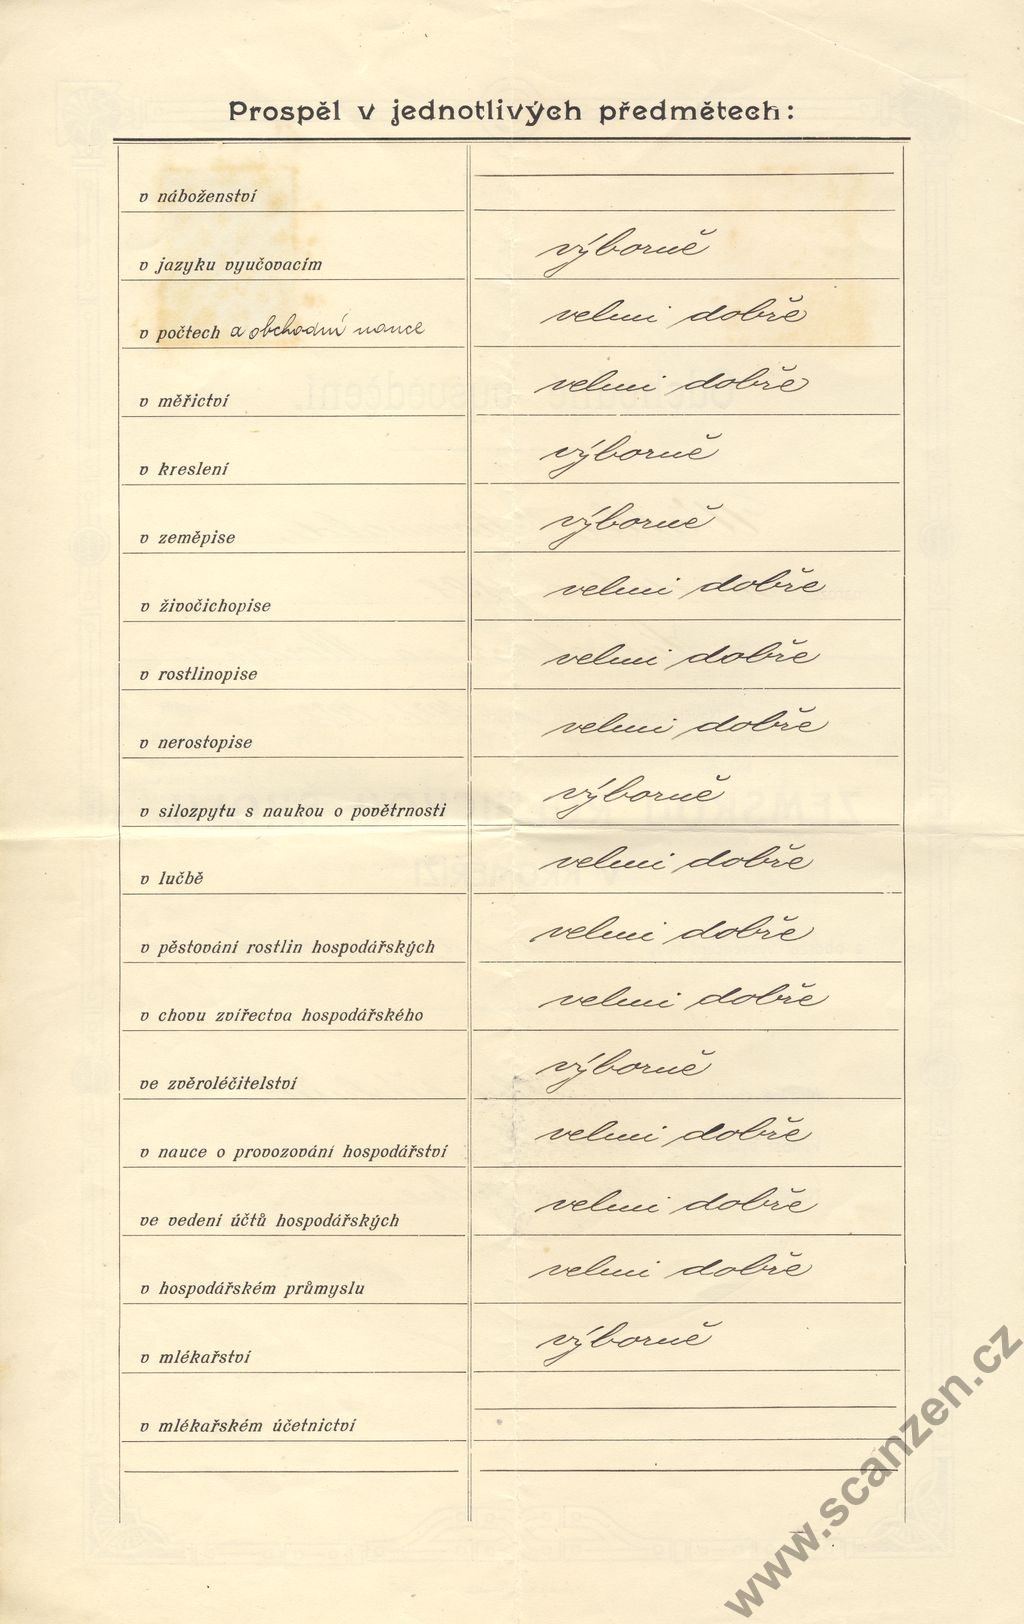 Prospěl v jednotlivých předmětech:
v náboženství
v jazyku vyučovacím výborně
v počtech a obchodní nauce velmi dobře
v měřictví velmi dobře
v kreslení výborně
v zeměpise výborně
v živočichopise velmi dobře
v rostlinopise velmi dobře
v nerostopise velmi dobře
v silozpytu s naukou o povětrnosti výborně
v lučbě velmi dobře
v pěstování rostlin hospodářských velmi dobře
v chovu zvířectva hospodářského velmi dobře
ve zvěroléčitelství výborně
v nauce o provozování hospodářství velmi dobře
ve vedení účtů hospodářských velmi dobře
v hospodářském průmyslu velmi dobře
v mlékařství výborně
v mlékařském účetnictví
www.scanzen.cz